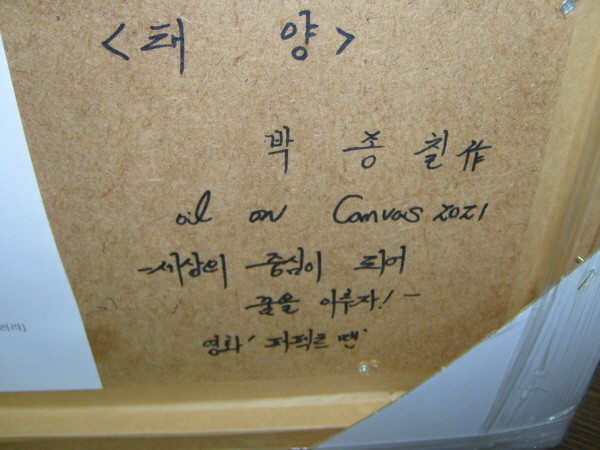 <태 양>
박 종 칠 作
oil on Canvas 2021
-세상의 중심이 되어
꿈을 이루자! -
영화 '퍼펙트 맨'